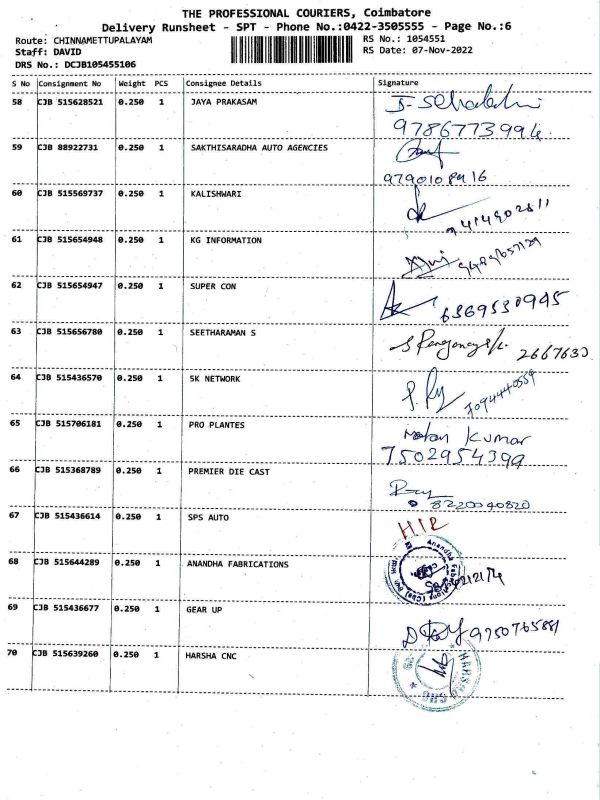 THE PROFESSIONAL COURIERS, Coimbatore
Delivery Runsheet - SPT - Phone No.:0422-3505555 - Page No.:6
Route: CHINNAMETTUPALAYAM
RS No.: 1054551
Staff: DAVID
RS Date: 07-Nov-2022
DRS No.: DCJB105455106
S No Consignment No Weight PCS Consignee Details Signature
58 CJB 515628521 0.250 1 JAYA PRAKASAM
9786773994
59 CJB 88922731 0.250 1 SAKTHISARADHA AUTO AGENCIES
60 CJB 515569737 0.250 1 KALISHWARI
61 CJB 515654948 0.250 1 KG INFORMATION
62 CJB 515654947 0.250 1 SUPER CON
6369530945
63 CJB 515656780 0.250 1 SEETHARAMAN S
2667630
64 CJB 515436570 0.250 1 5K NETWORK
7094440559
65 CJB 515706181 0.250 1 PRO PLANTES
Mohan Kumar
7502954399
66 CJB 515368789 0.250 1 PREMIER DIE CAST
8220040820
67 CJB 515436614 0.250 1 SPS AUTO
68 CJB 515644289 0.250 1 ANANDHA FABRICATIONS
69 CJB 515436677 0.250 1 GEAR UP
9750765881
70 CJB 515639260 0.250 1 HARSHA CNC